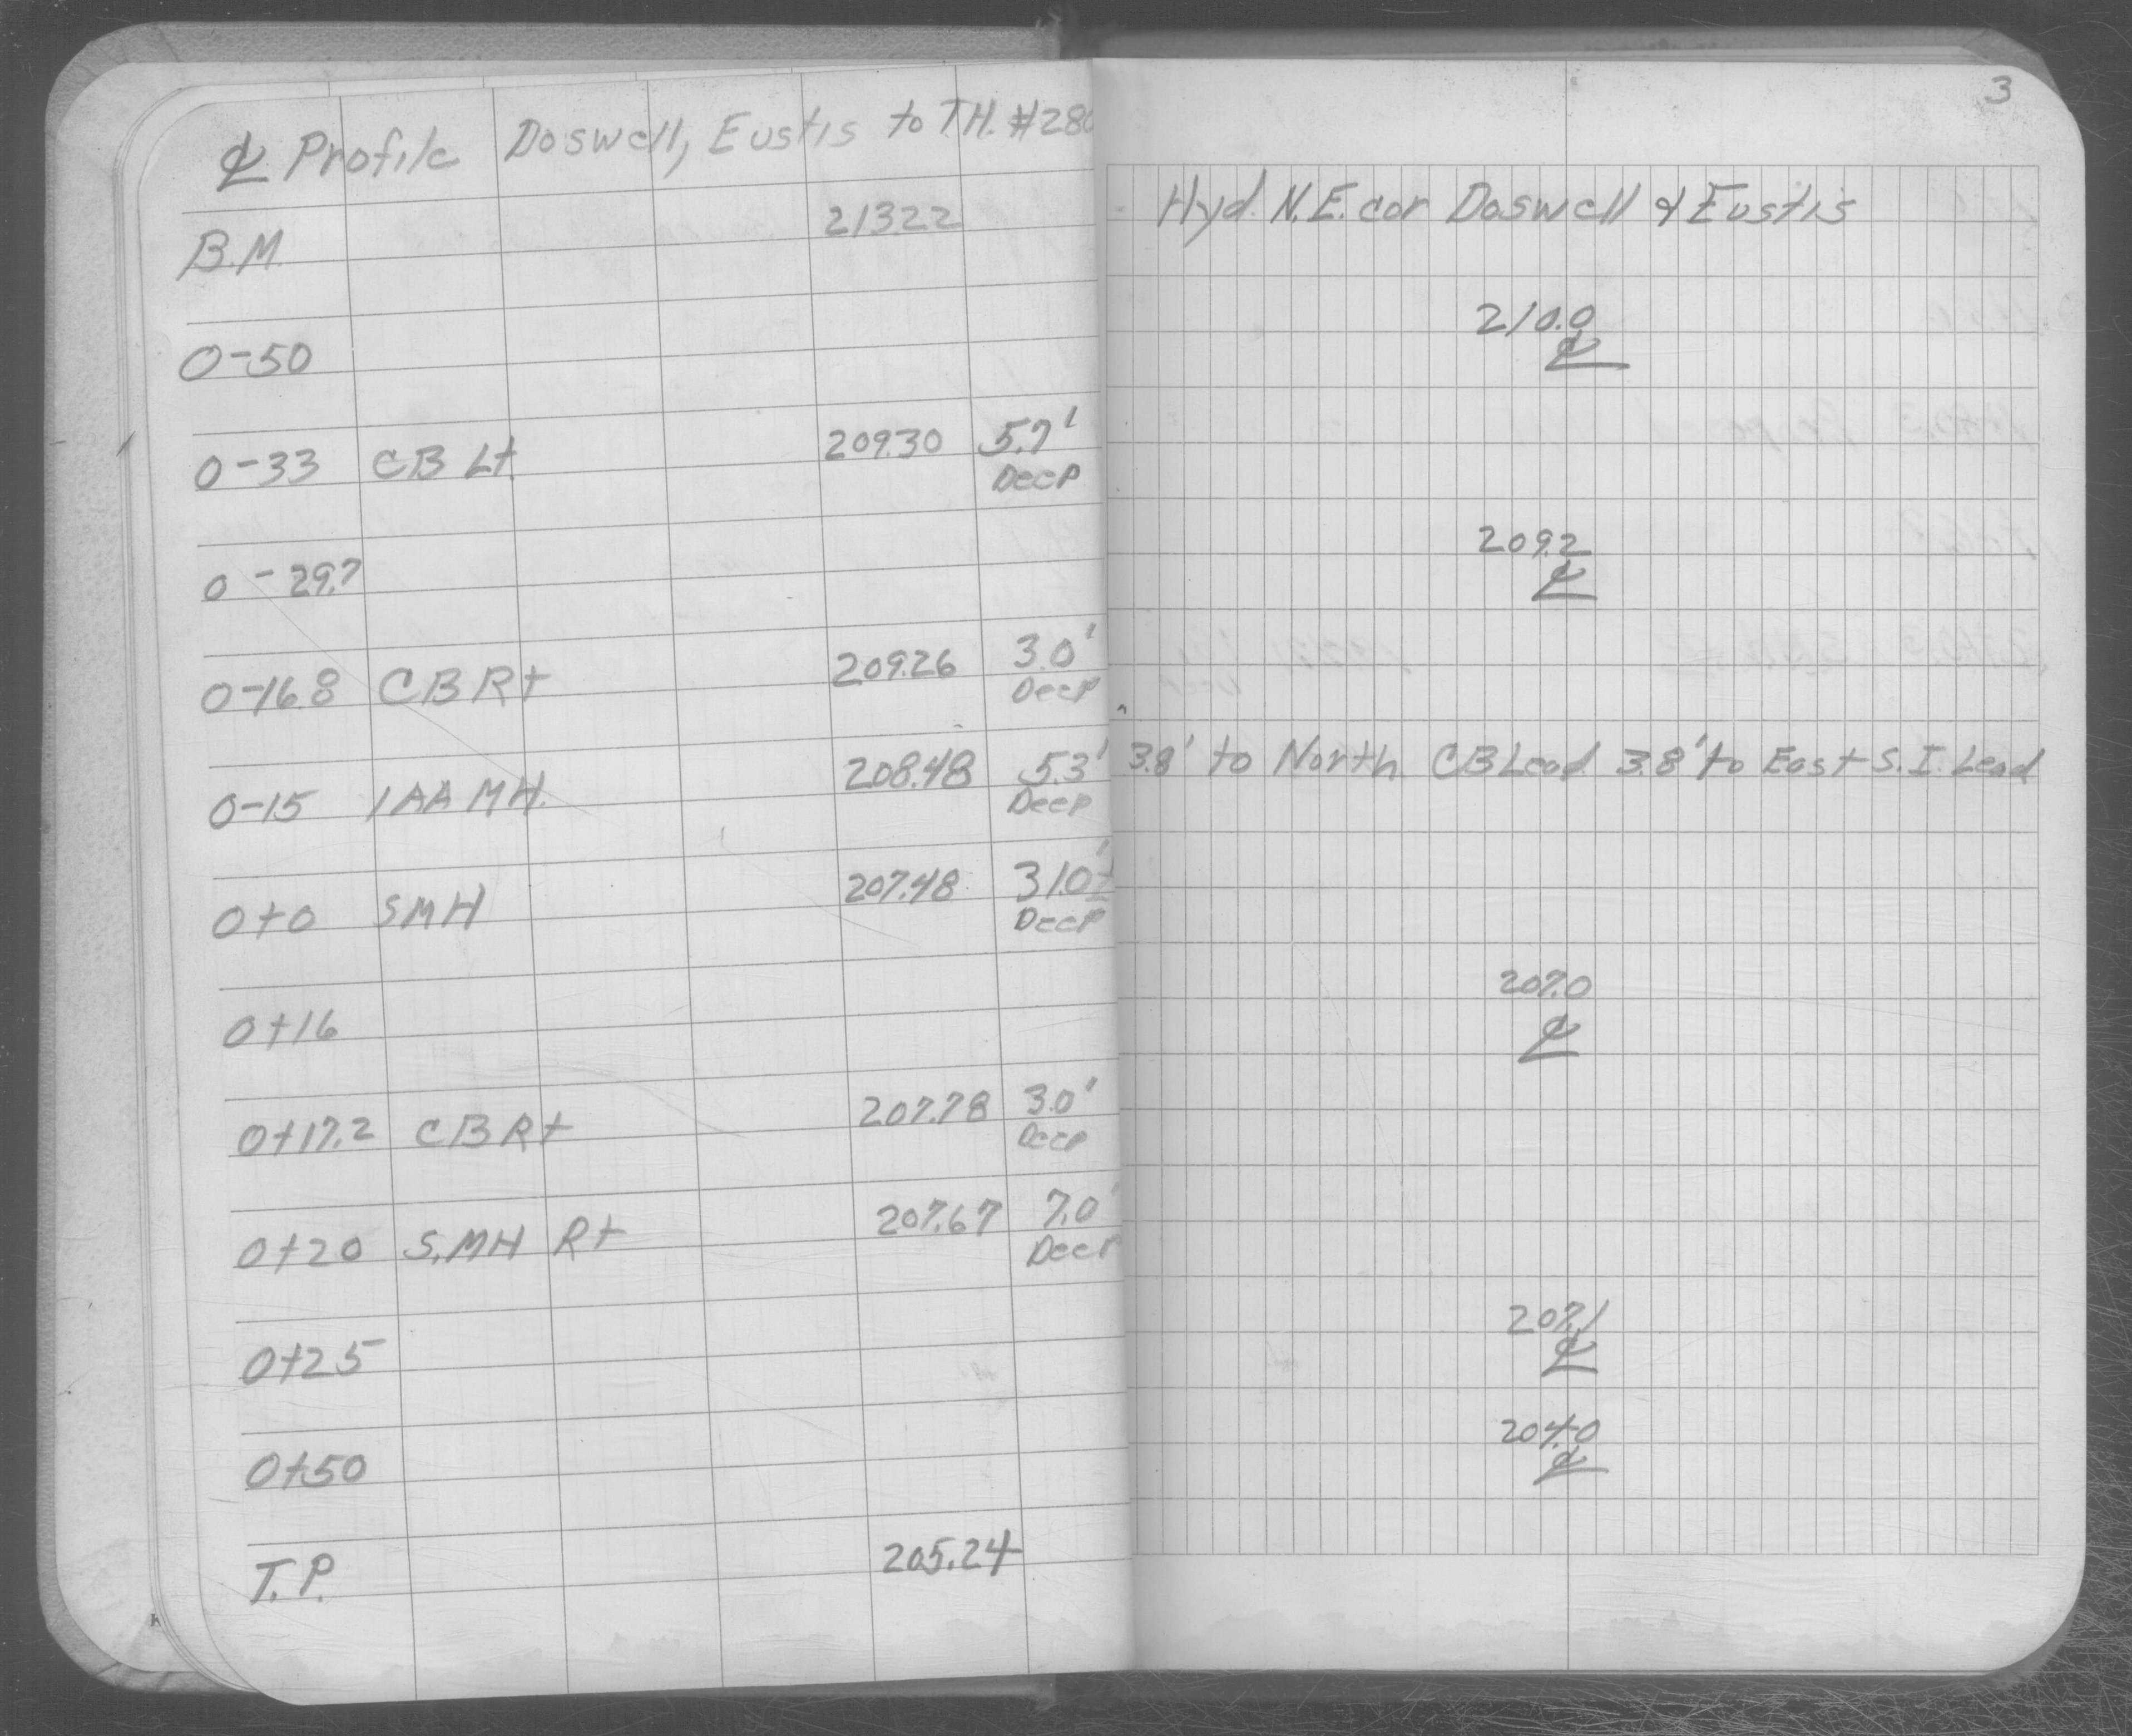 3
℄ Profile Doswell, Eustis to T.H. #280
B.M. 213.22 Hyd. N.E. cor Doswell & Eustis
0-50 210.0
℄
0-33 CB Lt. 209.30 5.7'
Deep
0-29.7 209.2
℄
0-16.8 CB Rt 209.26 3.0'
Deep
0-15 1AA MH. 208.48 5.3' 3.8' to North CB Lead 3.8' to East S.I. Lead
Deep
0+0 SMH 207.48 31.0'±
Deep
0+16 207.0
℄
0+17.2 CB Rt 207.78 3.0'
Deep
0+20 S.MH Rt 207.67 7.0'
Deep
0+25 207.1
℄
0+50 204.0
℄
T.P. 205.24